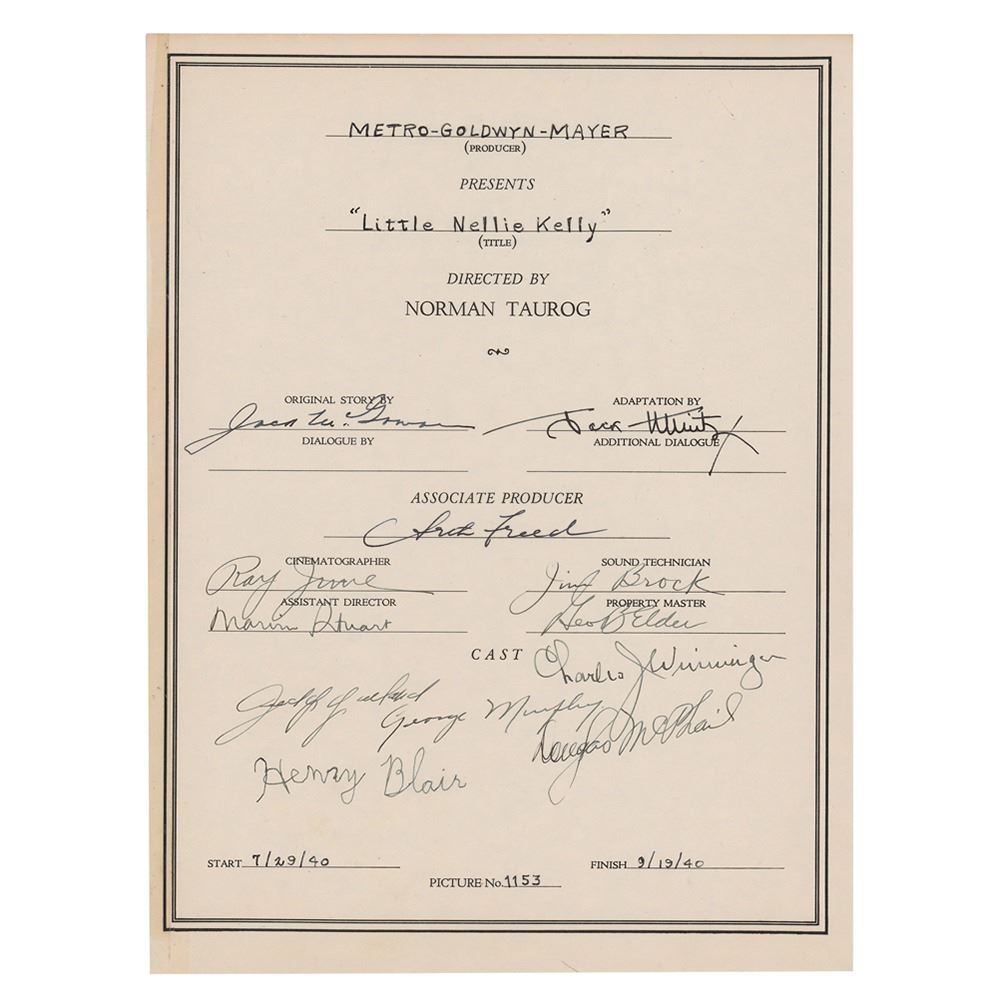 METRO-GOLDWYN-MAYER
(PRODUCER)
PRESENTS
"Little Nellie Kelly"
(TITLE)
DIRECTED BY
NORMAN TAUROG
ORIGINAL STORY BY
Jack Mc.Gowan
DIALOGUE BY
ADAPTATION BY
Jack Mintz
ADDITIONAL DIALOGUE
ASSOCIATE PRODUCER
Arth Freed
CINEMATOGRAPHER
Ray June
ASSISTANT DIRECTOR
Marvin Stuart
SOUND TECHNICIAN
Jim Brock
PROPERTY MASTER
Geo B Elder
CAST
Charles J Winninger
Judy Garland
George Murphy
Douglas McPhail
Henry Blair
START 7/29/40
FINISH 9/19/40
PICTURE No. 1153